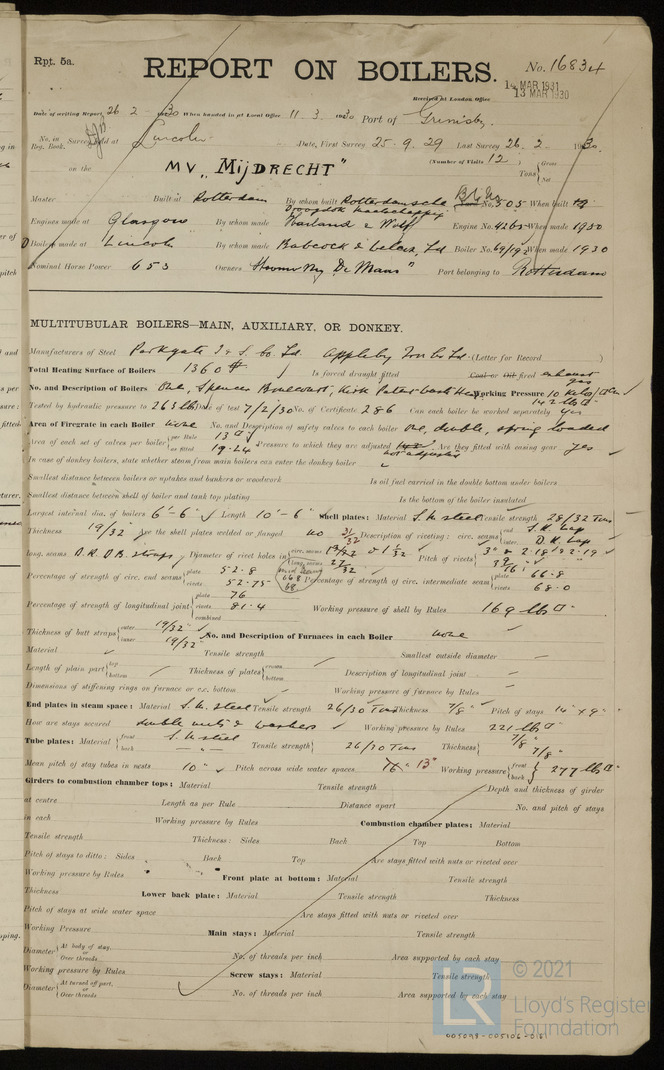 Rpt. 5a.
REPORT ON BOILERS.
No. 16834
Received at London Office
14 MAR 1931
13 MAR 1930
Date of writing Report 26 2 1930 When handed in at Local Office 11. 3. 1930 Port of Grimsby.
No. in Reg. Book. Survey held at Lincoln Date, First Survey 25. 9. 29 Last Survey 26. 2. 1930.
(Number of Visits 12)
on the MV „MijDRECHT" Tons Gross Net
Master Built at Rotterdam By whom built Rotterdamsche Droogdok Maatschappij No. 505 When built 19
Engines made at Glasgow By whom made Harland & Wolff Engine No. When made 1930
Boilers made at Lincoln By whom made Babcock & Wilcox, Ld Boiler No. When made 1930
Nominal Horse Power 653 Owners "De Maas" Port belonging to Rotterdam
MULTITUBULAR BOILERS—MAIN, AUXILIARY, OR DONKEY.
Manufacturers of Steel Parkgate I & S. Co. Ld. Appleby Iron Co Ld. (Letter for Record )
Total Heating Surface of Boilers 1360 Is forced draught fitted Coal or Oil fired exhaust gas
No. and Description of Boilers One, Spencer Bonecourt, Working Pressure 10
142 lb
Tested by hydraulic pressure to 263 lb Date of test 7/2/30 No. of Certificate 286 Can each boiler be worked separately yes
Area of Firegrate in each Boiler none No. and Description of safety valves to each boiler One, double, spring loaded
Area of each set of valves per boiler per Rule 13 as fitted 19.24 Pressure to which they are adjusted not adjusted Are they fitted with easing gear yes
In case of donkey boilers, state whether steam from main boilers can enter the donkey boiler
Smallest distance between boilers or uptakes and bunkers or woodwork Is oil fuel carried in the double bottom under boilers
Smallest distance between shell of boiler and tank top plating Is the bottom of the boiler insulated
Largest internal dia. of boilers 6'-6" Length 10'-6" Shell plates: Material S. M steel Tensile strength 28/32 Tons
Thickness 19/32 Are the shell plates welded or flanged no Description of riveting: circ. seams end S.R. Lap inter. D.R. Lap
long. seams D.R. D.B. straps Diameter of rivet holes in circ. seams long. seams 27/32 Pitch of rivets
Percentage of strength of circ. end seams plate 52.8 rivets 52.75 Percentage of strength of circ. intermediate seam plate 66.8 rivets 68.0
Percentage of strength of longitudinal joint plate 76 rivets 81.4 combined Working pressure of shell by Rules 169 lb
Thickness of butt straps outer 19/32 inner 19/32 No. and Description of Furnaces in each Boiler none
Material Tensile strength Smallest outside diameter
Length of plain part top bottom Thickness of plates crown bottom Description of longitudinal joint
Dimensions of stiffening rings on furnace or c.c. bottom Working pressure of furnace by Rules
End plates in steam space: Material S. M. steel Tensile strength 26/30 Tons Thickness 7/8" Pitch of stays 14" x 9"
How are stays secured double nuts & washers Working Pressure by Rules 221 lb
Tube plates: Material front S. M steel back — " — Tensile strength 26/30 Tons Thickness 7/8" 7/8"
Mean pitch of stay tubes in nests 10" Pitch across wide water spaces 13" Working pressure front back 277 lb
Girders to combustion chamber tops: Material Tensile strength Depth and thickness of girder
at centre Length as per Rule Distance apart No. and pitch of stays
in each Working pressure by Rules Combustion chamber plates: Material
Tensile strength Thickness: Sides Back Top Bottom
Pitch of stays to ditto: Sides Back Top Are stays fitted with nuts or riveted over
Working pressure by Rules Front plate at bottom: Material Tensile strength
Thickness Lower back plate: Material Tensile strength Thickness
Pitch of stays at wide water space Are stays fitted with nuts or riveted over
Working Pressure Main stays: Material Tensile strength
Diameter At body of stay, or Over threads No. of threads per inch Area supported by each stay
Working pressure by Rules Screw stays: Material Tensile strength
Diameter At turned off part, or Over threads No. of threads per inch Area supported by each stay
LR
© 2021
Lloyd's Register
Foundation